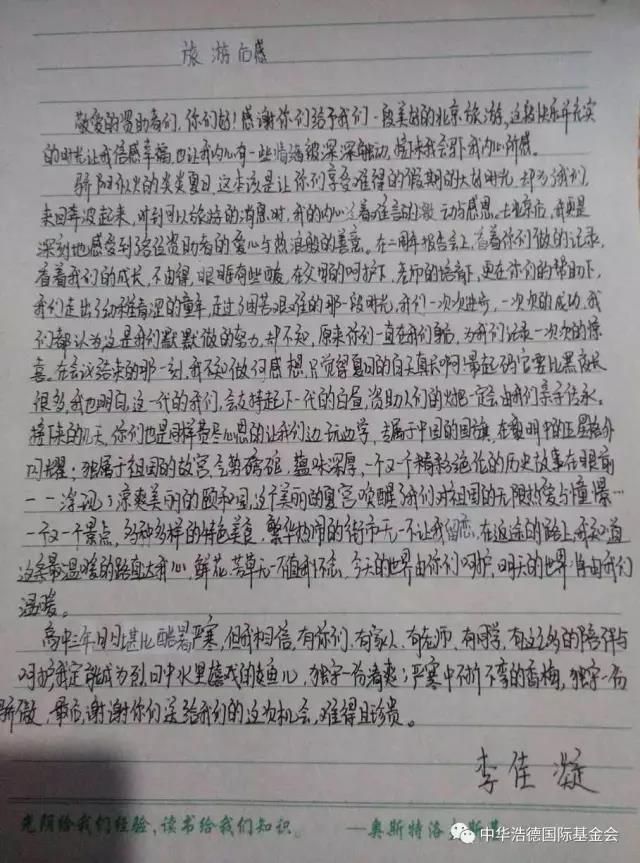 旅游有感
敬爱的资助者们，你们好！感谢你们给予我们一段美好的北京旅游，这段快乐并充实
的时光让我倍感幸福，也让我内心有一些情弦被深深触动，接下来我会写下我内心所感。
骄阳似火的炎炎夏日，这本该是让你们享受难得的假期的大好时光，却为我们
来回奔波起来，听到可以旅游的消息时，我的内心泛着难言的激动与感恩。去北京后，我更是
深刻地感受到各位资助者的爱心与热浪般的善意。在二周年报告会上，看着你们做的记录，
看着我们的成长，不由得，眼眶有些酸，在父母的呵护下，老师的培育下，更在你们的帮助下，
我们走出了幼稚青涩的童年，走过了困苦艰难的那一段时光，我们一次次进步，一次次的成功，我
们都认为这是我们默默做的努力，却不知，原来你们一直在我们身后，为我们记录一次次的惊
喜。在会议结束的那一刻，我不知做何感想，只觉得夏日的白天真长啊！最起码它要比黑夜长
很多，我也明白，这一代的我们，会支持起下一代的白昼，资助人们的火把一定会由我们亲手传承。
接下来的几天，你们也是同样费尽心思的让我们边玩边学，专属于中国的国旗，在黎明中的五星格外
闪耀；独属于祖国的故宫，气势磅礴，蕴味深厚，一个又一个精彩绝伦的历史故事在眼前
一一浮现；凉爽美丽的颐和园，这个美丽的夏宫唤醒了我们对祖国的无限热爱与憧憬…
一个又一个景点，多种多样的特色美食，繁华热闹的街市无一不让我留恋，在返途的路上，我知道
这条最温暖的路直达我心，鲜花、芳草无一不值我怀念，今天的世界由你们呵护，明天的世界将由我们
温暖。
高中三年日日堪比酷暑严寒，但我相信，有你们、有家人、有老师、有同学，有这么多的陪伴与
呵护，我定能成为烈日中水里嬉戏的鱼儿，独守一份清爽；严寒中不折不弯的香梅，独守一份
骄傲，最后，谢谢你们送给我们的这次机会，难得且珍贵。
李佳凝
光阴给我们经验，读书给我们知识。 ——奥斯特洛夫斯基
中华浩德国际基金会